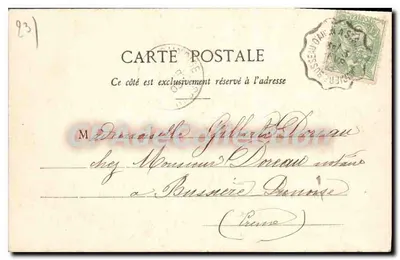 23)
CARTE POSTALE
Ce côté est exclusivement réservé à l'adresse
Mademoiselle Gilberte Doreau
chez Monsieur Doreau notaire
à Bussière Dunoise
(Creuse)